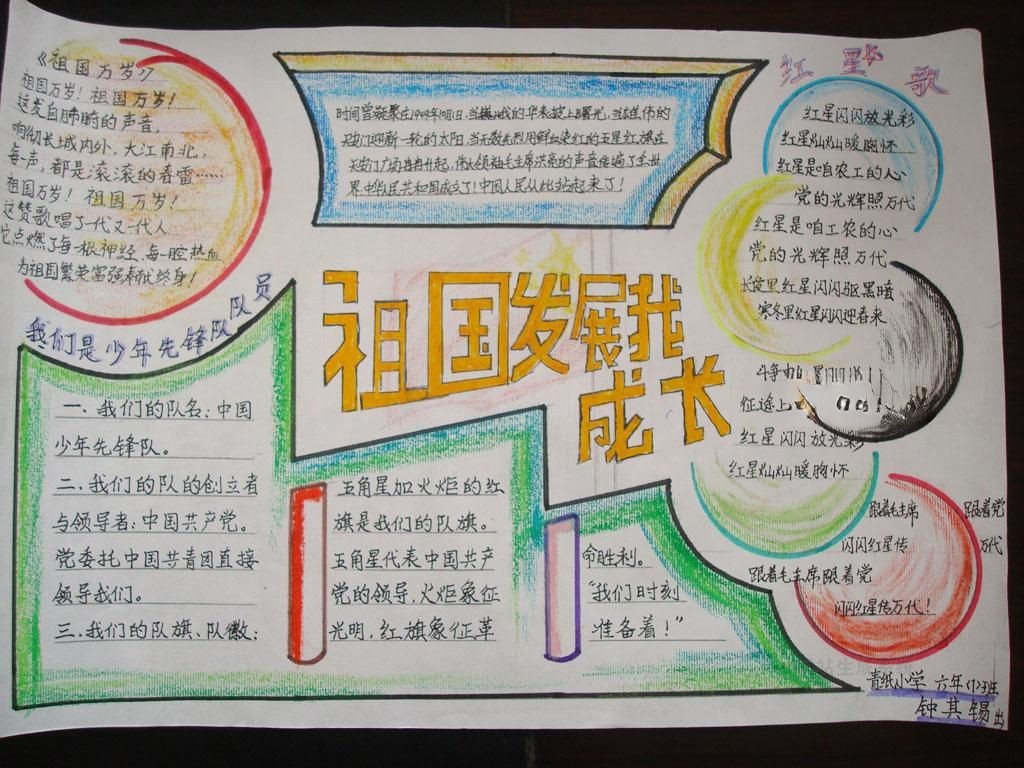 《祖国万岁》
祖国万岁！祖国万岁！
这发自肺腑的声音，
响彻长城内外，大江南北，
每一声，都是滚滚的春雷……
祖国万岁！祖国万岁！
这赞歌唱了一代又一代人
它点燃了每一根神经，每一腔热血
为祖国繁荣富强奉献终身！
时间曾凝聚在1949年10月1日，当巍峨的华表披上曙光，当雄伟的
天安门迎新一轮的太阳，当无数先烈用鲜血染红的五星红旗在
天安门广场冉冉升起，伟大领袖毛主席洪亮的声音传遍了全世
界中华人民共和国成立了！中国人民从此站起来了！
红星歌
红星闪闪放光彩
红星灿灿暖胸怀
红星是咱农工的人心
党的光辉照万代
红星是咱工农的心
党的光辉照万代
长夜里红星闪闪驱黑暗
寒冬里红星闪闪迎春来
斗争中
征途上
红星闪闪放光彩
红星灿灿暖胸怀
跟着毛主席 跟着党
闪闪红星传 万代
跟着毛主席跟着党
闪闪红星传万代！
祖国发展我
成长
我们是少年先锋队队员
一、我们的队名：中国
少年先锋队。
二、我们的队的创立者
与领导者：中国共产党。
党委托中国共青团直接
领导我们。
三、我们的队旗、队徽：
五角星加火炬的红
旗是我们的队旗。
五角星代表中国共产
党的领导，火炬象征
光明，红旗象征革
命胜利。
“我们时刻
准备着！”
青纸小学 六年(1)班
钟其锡出